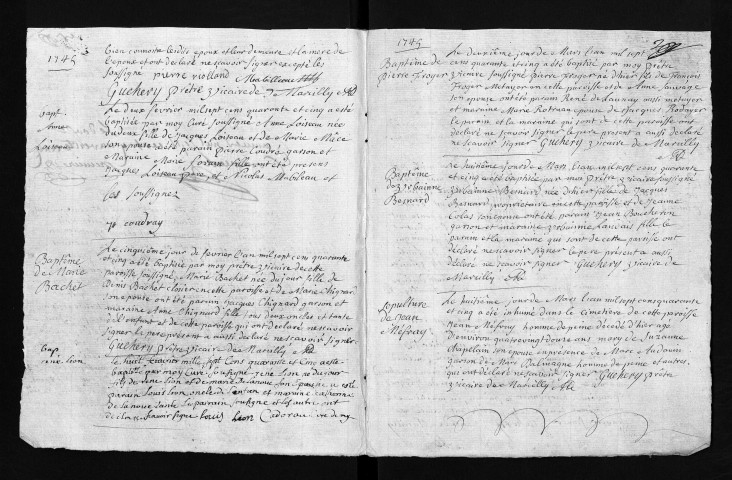 1745
bien connoitre lesdits epoux et leur demeure et la mere de
l'epoux et ont declaré ne scavoir signer excepté les
soussigné pierre violland
Guehery prêtre vicaire de Marcillÿ
bapt.
Anne
Loiseau
Le deux fevrier mil sept cens quarante et cinq a été
baptisée par moy Curé soussigné Anne Loiseau née
du deux fille de Jacques Loiseau et de Marie
son epouse a été parain pierre Coudré garson et
maraine Marie Lorain fille ont été presens
Jaques Loiseau pere et Nicolas Mabileau et
les soussignez
p coudray
Baptême
de Marie
Bachet
Le cinquiême jour de fevrier l'an mil sept cens quarante
et cinq a été baptisée par moy prêtre vicaire de cette
paroisse soussigné Marie Bachet née du jour fille de
Denis Bachet closier en cette paroisse et de Marie Chignard
son epouse ont été parain Jacques Chignard garson et
maraine Anne Chignard fille tous deux oncles et tante
à l'enfant et de cette paroisse qui ont declaré ne scavoir
signer le pere présent a aussi declaré ne scavoir signer
Guehery prêtre vicaire de Marcillÿ
bap
rene lion
le huit fevrier mille sept Cens quarante et Cinq a este
baptisé par moy Curé soussigné rene lion né du jour
fils de rene lion et de marie de lanoue son epouse a esté
parain Louis lion oncle de l'enfant et maraine catherine
de lanoue tante le parain soussigné et les autres ont
declaré ne scavoir signer louis lion Cadorau curé de
1745
Baptême de
pierre Froger
Le deuxiême jour de Mars l'an mil sept
cens quarante et cinq a été baptisé par moy prêtre
vicaire soussigné pierre Froger né d'hier fils de François
Froger Métayer en cette paroisse et de Anne Sauvage
son epouse ont été parain René de Launay aussi métayer
et maraine Marie epouse de Jacques
le parain et la maraine qui sont de cette paroisse ont
declaré ne scavoir signer le pere present a aussi declaré
ne scavoir signer Guehery vicaire de Marcillÿ
Baptême
d'urbainne
Besnard
Le huitiême jour de Mars l'an mil sept cens quarante
et cinq a été baptisée par moy prêtre vicaire soussigné
urbainne Besnard née d'hier fille de Jacques
Besnard proprietaire en cette paroisse et de Jeanne
Colas son epouse ont été parain Jean Boucheron
garson et maraine urbainne fille le
parain et la maraine qui sont de cette paroisse ont
declaré ne scavoir signer le pere present a aussi
declaré ne scavoir signer Guehery vicaire de
Marcillÿ
Sepulture
de Jean
Mesfray
Le huitiême jour de Mars l'an mil sept cens quarante
et cinq a été inhumé dans le cimetiere de cette paroisse
Jean Mesfray homme de peine decedé d'hier agé
d'environ quatre vingt douze ans mary de Suzanne
Chapelain son epouse en presence de Marc Audouin
garson de homme de peine et autres
qui ont declaré ne scavoir signer Guehery prêtre
vicaire de Marcillÿ